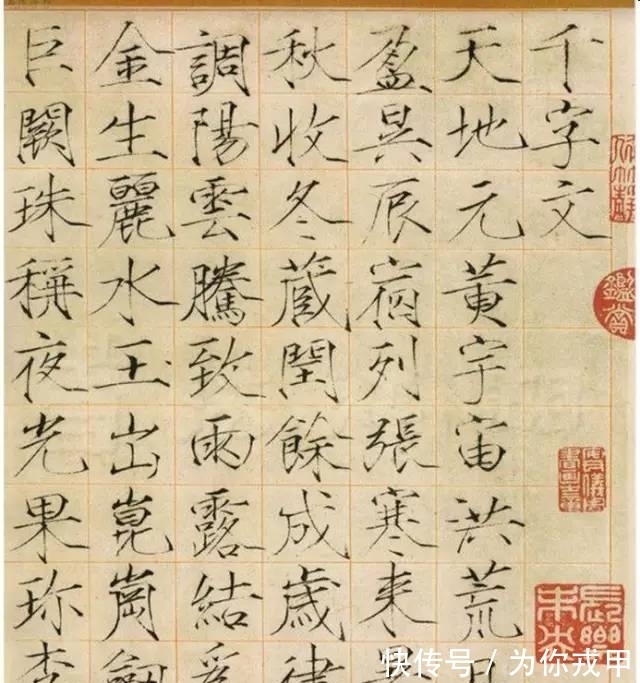 千字文
天地元黄宇宙洪荒日
盈昃辰宿列張寒来暑
秋收冬蔵閏餘成歳律
調陽雲騰致雨露結爲
金生麗水玉出崑崗劍
巨闕珠稱夜光果珎李
鑑賞
快传号 / 为你戎甲